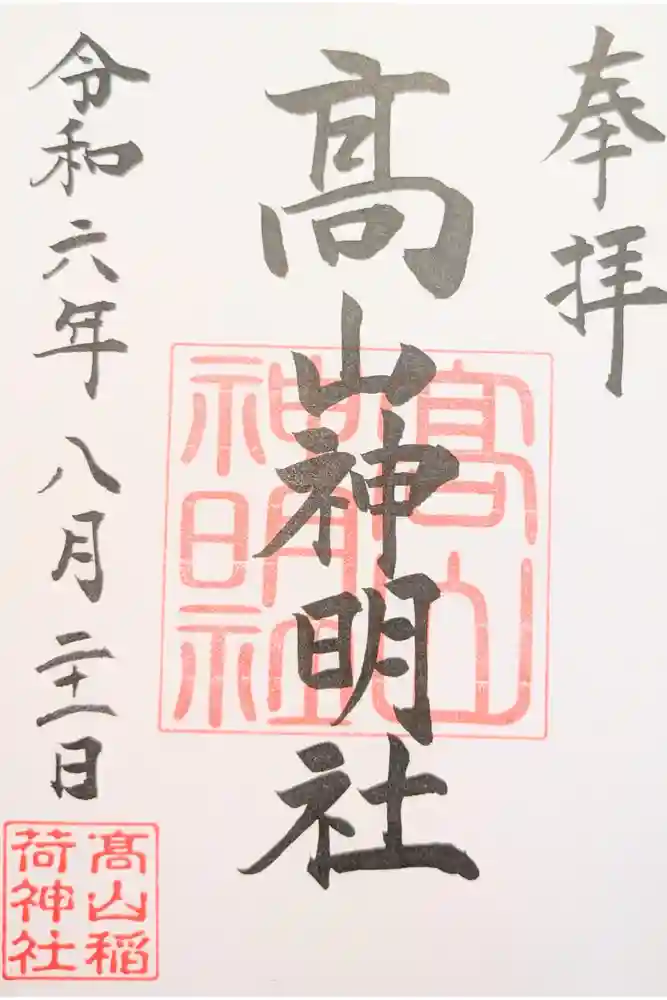 奉拝
髙山神明社
髙山
神明社
令和六年八月二十一日
髙山稲
荷神社